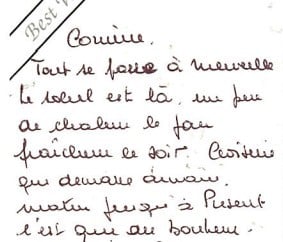 Best
Tout se passe à merveille
le soleil est là, un peu
de chaleur le
fraîcheur le soir. Croisière
qui demarre
matin jusqu'à Present
c'est que du bonheur.